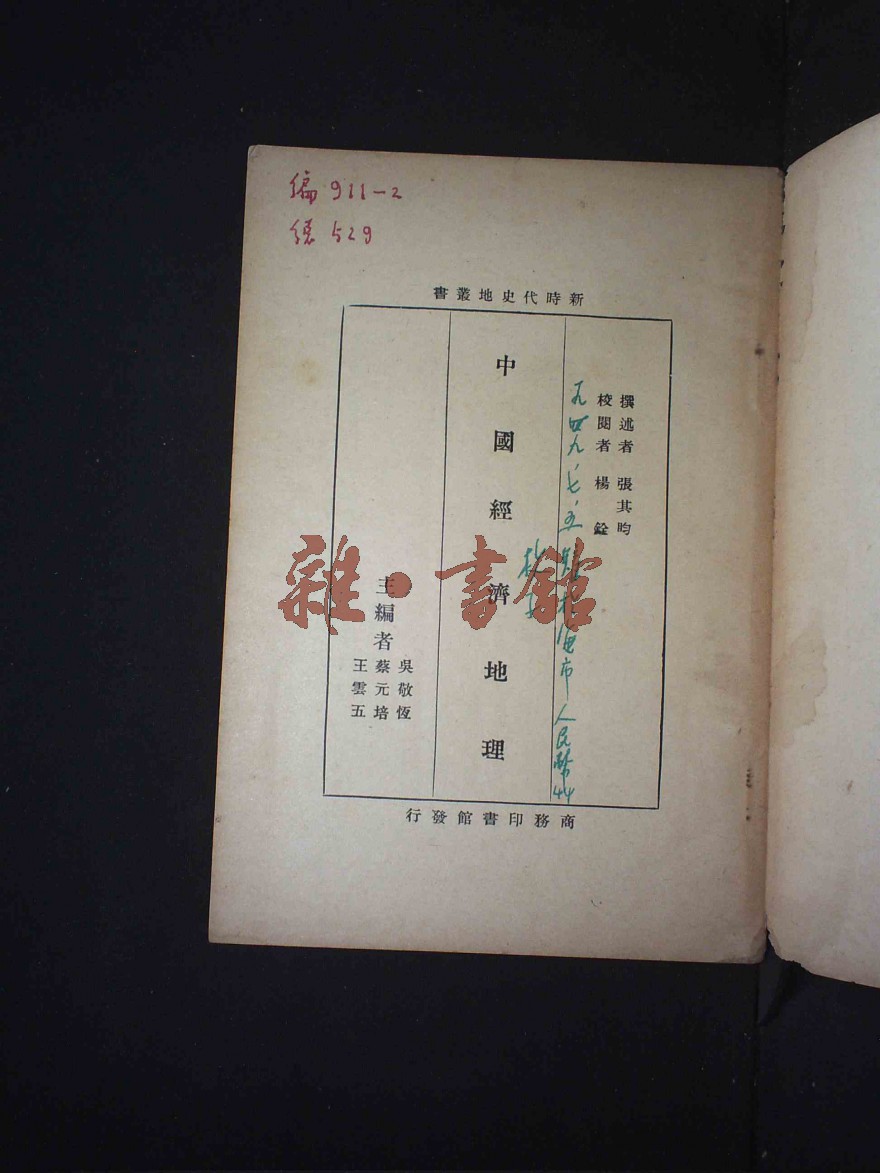 編 911-2
總 529
新時代史地叢書
撰述者 張其昀
校閱者 楊銓
一九四九、七、五
市人民幣44
中國經濟地理
主編者
吳敬恆
蔡元培
王雲五
商務印書館發行
雜·書館